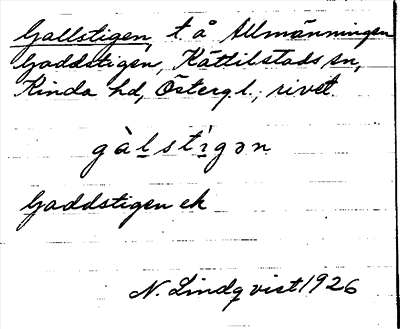 Gallstigen, t. å Allmänningen
Gaddstigen, Kättilstads sn,
Kinda hd, Östergl., rivet.
gàlstìgən
Gaddstigen ek
N. Lindqvist 1926